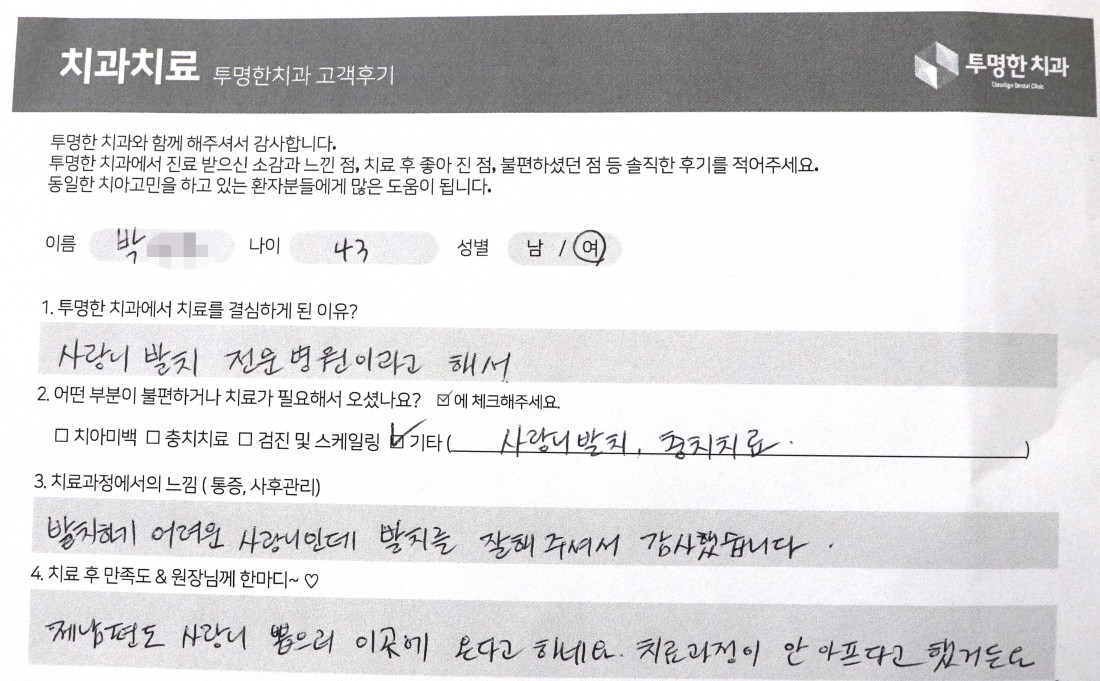 치과치료 투명한치과 고객후기
투명한 치과
투명한 치과와 함께 해주셔서 감사합니다.
투명한 치과에서 진료 받으신 소감과 느낀 점, 치료 후 좋아 진 점, 불편하셨던 점 등 솔직한 후기를 적어주세요.
동일한 치아고민을 하고 있는 환자분들에게 많은 도움이 됩니다.
이름 박 나이 43 성별 남 / 여
1. 투명한 치과에서 치료를 결심하게 된 이유?
사랑니 발치 전문병원이라고 해서
2. 어떤 부분이 불편하거나 치료가 필요해서 오셨나요? ☑에 체크해주세요.
☐ 치아미백 ☐ 충치치료 ☐ 검진 및 스케일링 ☑ 기타 ( 사랑니발치, 충치치료. )
3. 치료과정에서의 느낌 ( 통증, 사후관리)
발치하기 어려운 사랑니인데 발치를 잘해주셔서 감사했습니다.
4. 치료 후 만족도 & 원장님께 한마디~ ♡
제남편도 사랑니 뽑으러 이곳에 온다고 하네요. 치료과정이 안 아프다고 했거든요